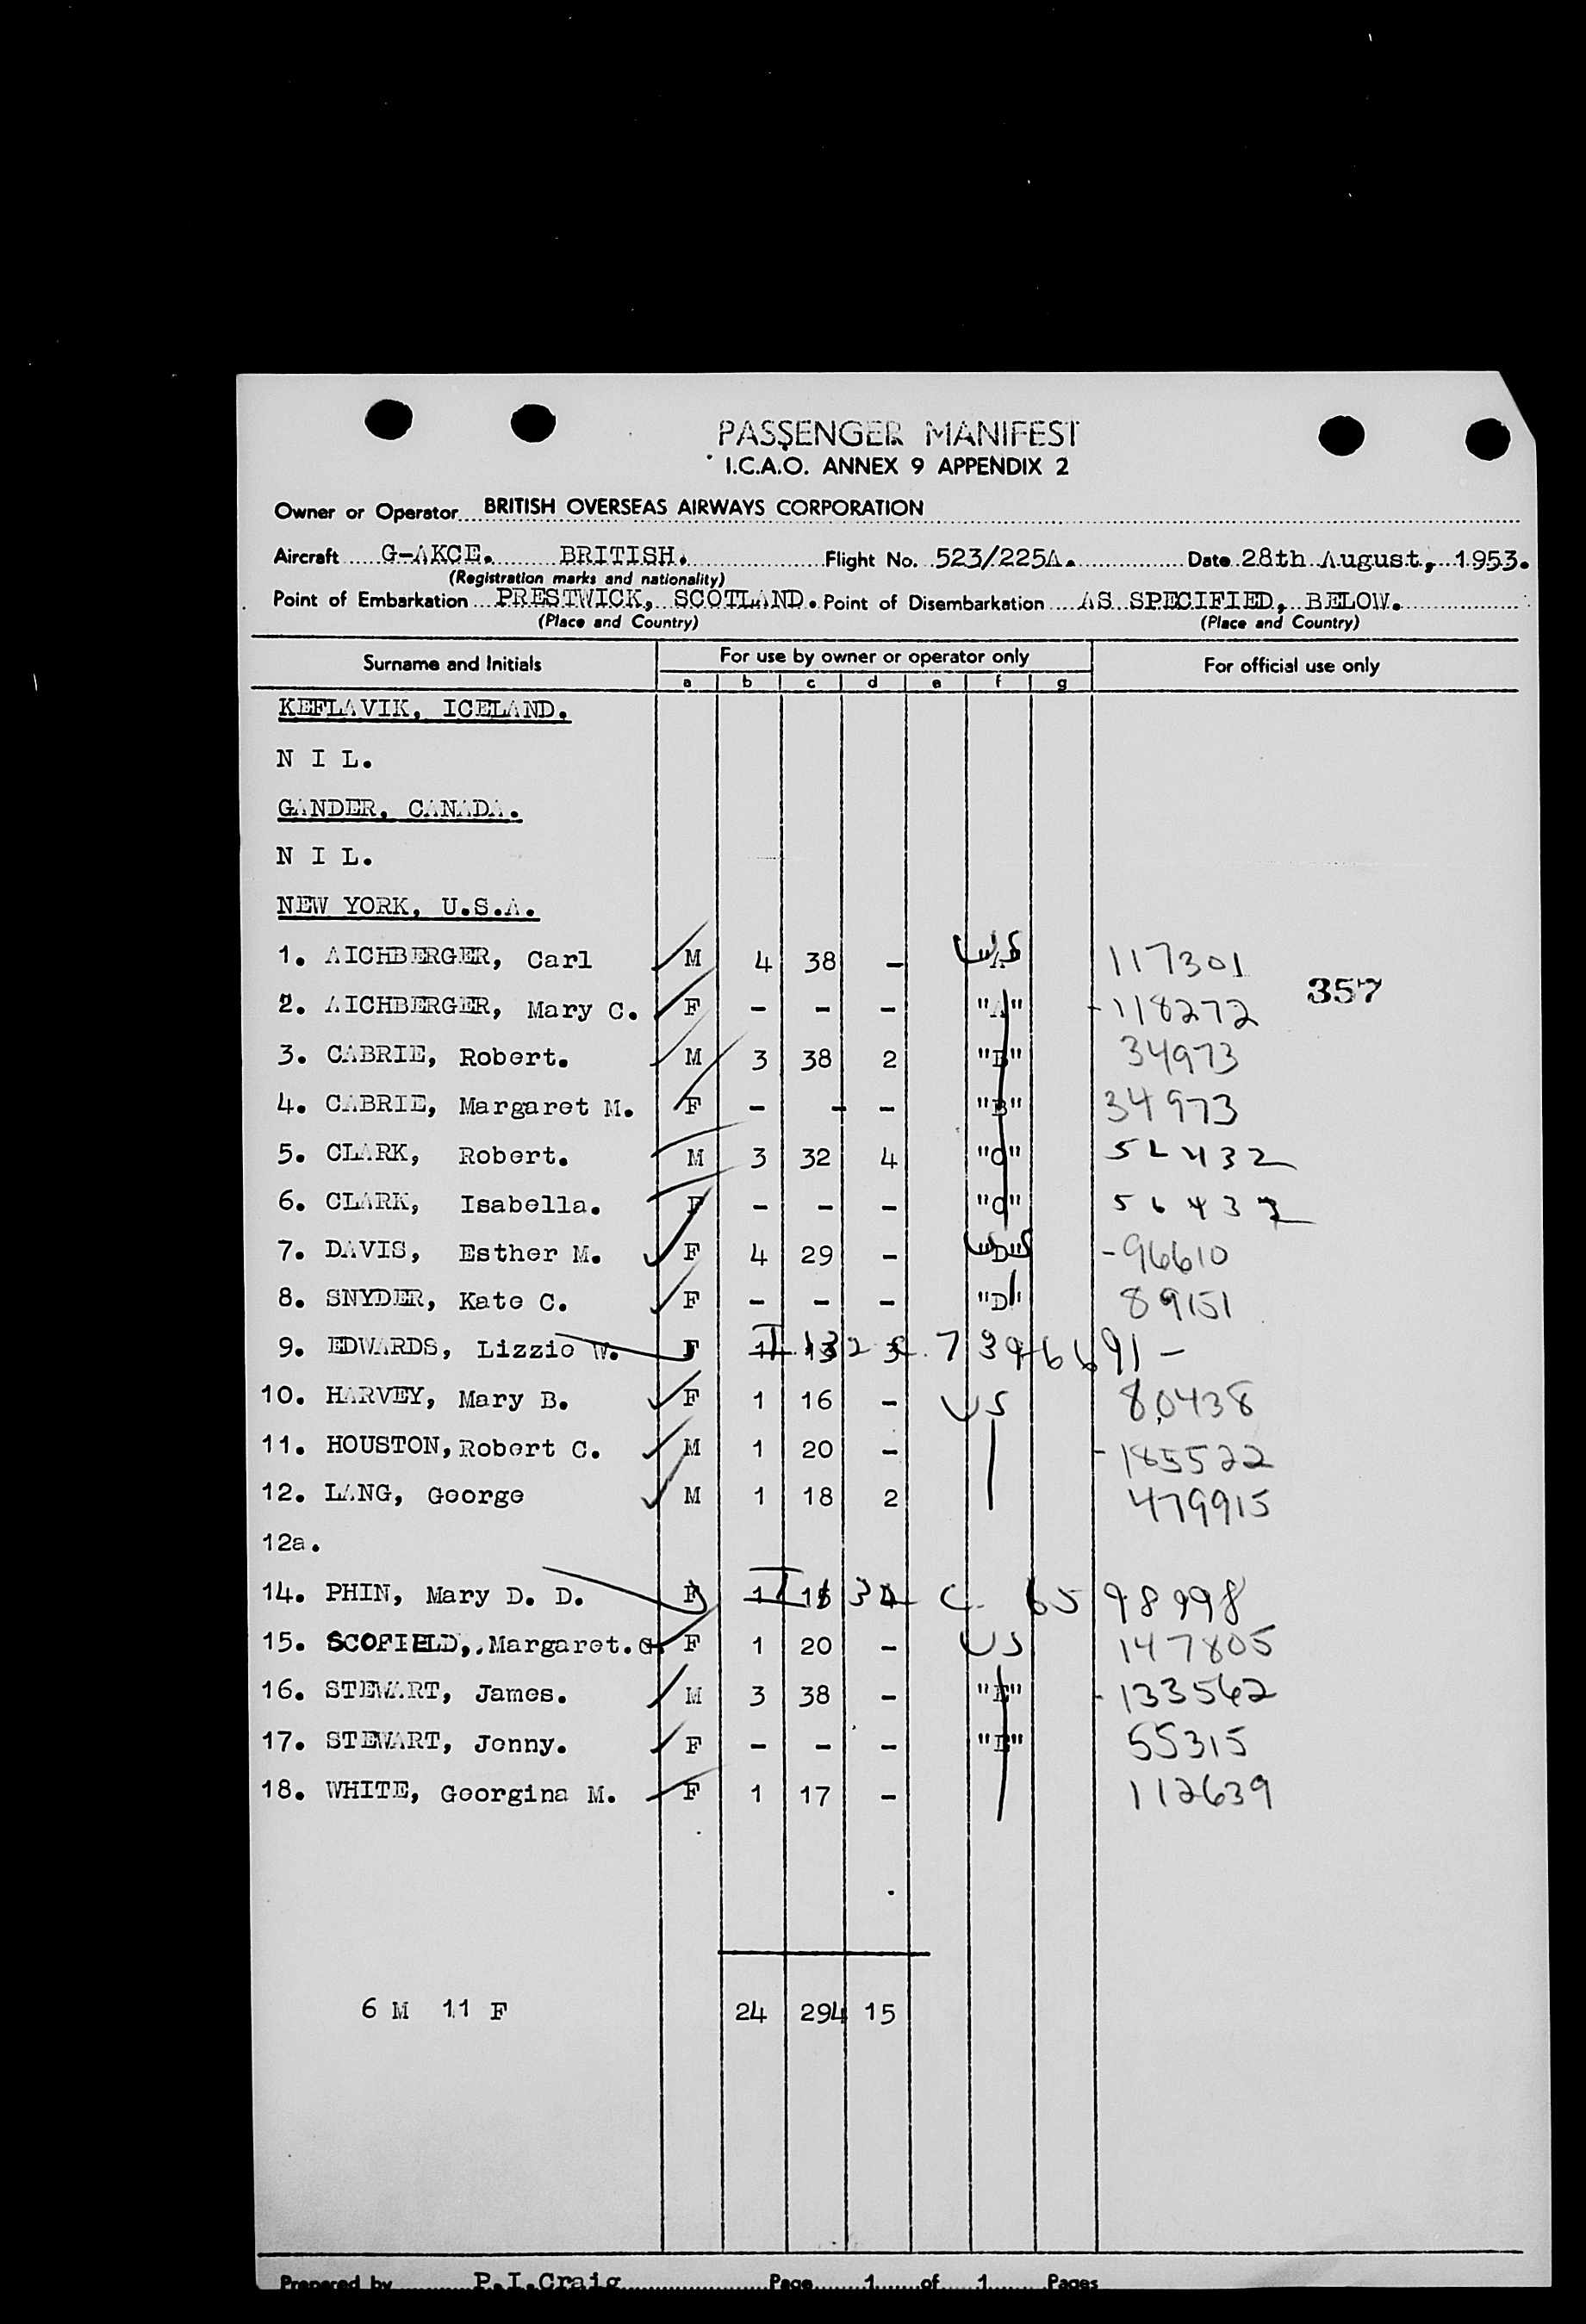 PASSENGER MANIFEST
I.C.A.O. ANNEX 9 APPENDIX 2
Owner or Operator BRITISH OVERSEAS AIRWAYS CORPORATION
Aircraft G-AKCE. BRITISH. Flight No. 523/225A. Date 28th August, 1953.
(Registration marks and nationality)
Point of Embarkation PRESTWICK, SCOTLAND. Point of Disembarkation AS SPECIFIED, BELOW.
(Place and Country) (Place and Country)
Surname and Initials For use by owner or operator only For official use only
a b c d e f g
KEFLAVIK, ICELAND.
N I L.
GANDER, CANADA.
N I L.
NEW YORK, U.S.A.
1. AICHBERGER, Carl M 4 38 - "A" US 117301
357
2. AICHBERGER, Mary C. F - - - "A" -118272
3. CABRIE, Robert. M 3 38 2 "B" 34973
4. CABRIE, Margaret M. F - - - "B" 34973
5. CLARK, Robert. M 3 32 4 "C" 432
6. CLARK, Isabella. F - - - "C" 432
7. DAVIS, Esther M. F 4 29 - "D" US -96610
8. SNYDER, Kate C. F - - - "D" 89151
9. EDWARDS, Lizzie W. F 1 13 3 91 -
10. HARVEY, Mary B. F 1 16 - US 80438
11. HOUSTON, Robert C. M 1 20 - -185522
12. LANG, George M 1 18 2 479915
12a.
14. PHIN, Mary D. D. F 1 15 4 65 98998
15. SCOFIELD, Margaret. G. F 1 20 - US 147805
16. STEWART, James. M 3 38 - "E" -133562
17. STEWART, Jenny. F - - - "E" 55315
18. WHITE, Georgina M. F 1 17 - 112639
6 M 11 F 24 294 15
Prepared by P.I.Craig Page 1 of 1 Pages